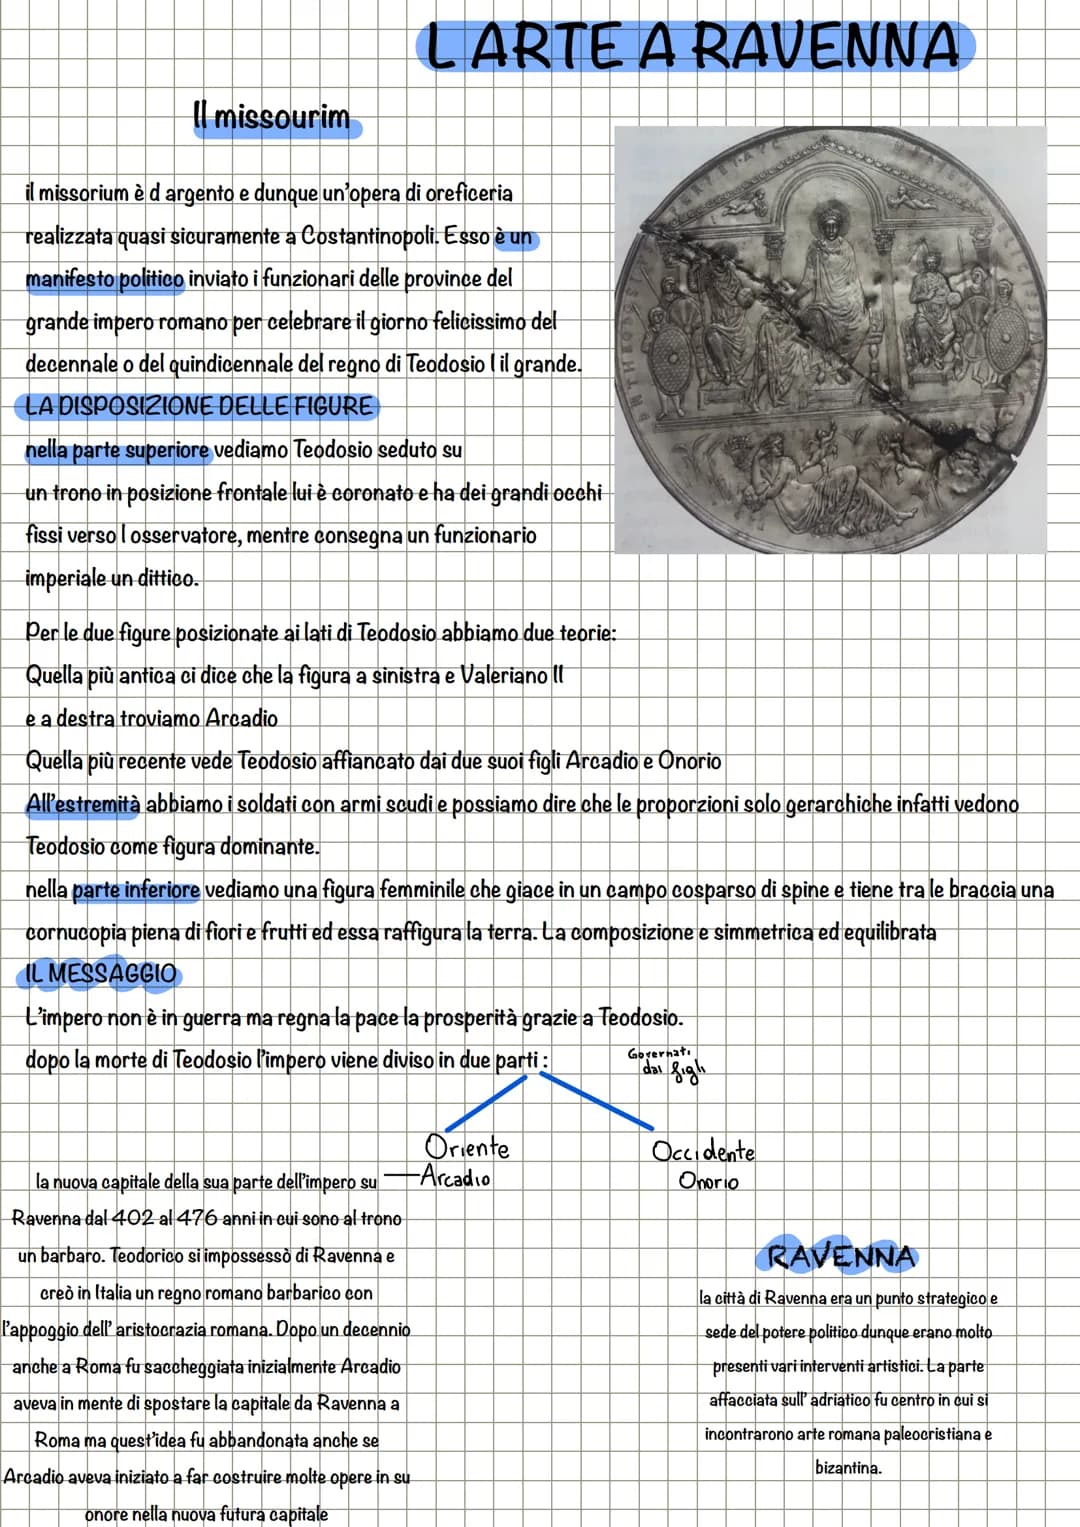 L ARTE A RAVENNA
Il missourim
il missorium è d argento e dunque un'opera di oreficeria
realizzata quasi sicuramente a Costantinopoli. Esso è un
manifesto politico inviato i funzionari delle province del
grande impero romano per celebrare il giorno felicissimo del
decennale o del quindicennale del regno di Teodosio I il grande.
LA DISPOSIZIONE DELLE FIGURE
nella parte superiore vediamo Teodosio seduto su
un trono in posizione frontale lui è coronato e ha dei grandi occhi
fissi verso l osservatore, mentre consegna un funzionario
imperiale un dittico.
Per le due figure posizionate ai lati di Teodosio abbiamo due teorie:
Quella più antica ci dice che la figura a sinistra e Valeriano II
e a destra troviamo Arcadio
Quella più recente vede Teodosio affiancato dai due suoi figli Arcadio e Onorio
All'estremità abbiamo i soldati con armi scudi e possiamo dire che le proporzioni solo gerarchiche infatti vedono
Teodosio come figura dominante.
nella parte inferiore vediamo una figura femminile che giace in un campo cosparso di spine e tiene tra le braccia una
cornucopia piena di fiori e frutti ed essa raffigura la terra. La composizione e simmetrica ed equilibrata
IL MESSAGGIO
L'impero non è in guerra ma regna la pace la prosperità grazie a Teodosio.
dopo la morte di Teodosio l'impero viene diviso in due parti :
Governati
dai figli
Oriente
Arcadio
Occidente
Onorio
la nuova capitale della sua parte dell'impero su
Ravenna dal 402 al 476 anni in cui sono al trono
un barbaro. Teodorico si impossessò di Ravenna e
creò in Italia un regno romano barbarico con
l'appoggio dell' aristocrazia romana. Dopo un decennio
anche a Roma fu saccheggiata inizialmente Arcadio
aveva in mente di spostare la capitale da Ravenna a
Roma ma quest'idea fu abbandonata anche se
Arcadio aveva iniziato a far costruire molte opere in su
onore nella nuova futura capitale
RAVENNA
la città di Ravenna era un punto strategico e
sede del potere politico dunque erano molto
presenti vari interventi artistici. La parte
affacciata sull' adriatico fu centro in cui si
incontrarono arte romana paleocristiana e
bizantina.